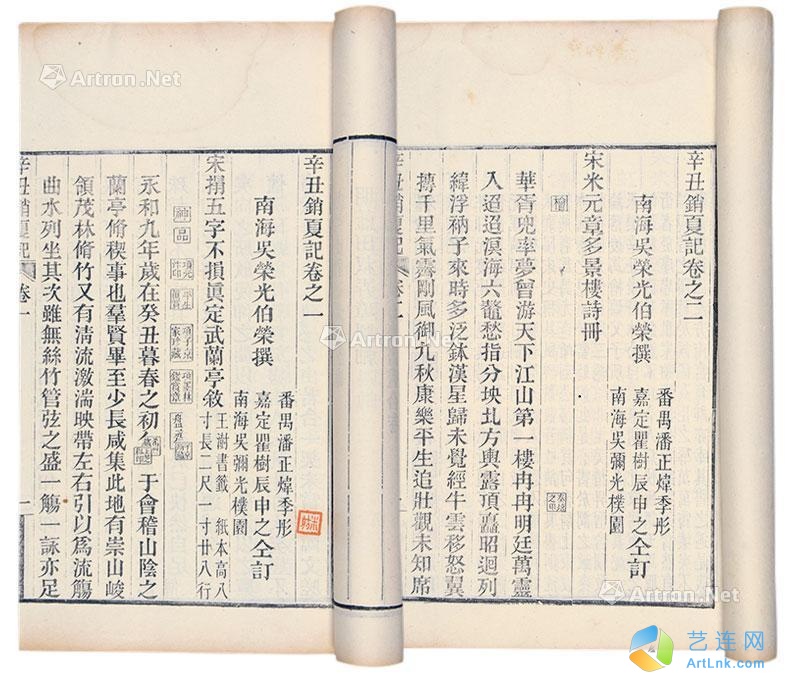 辛丑銷夏記卷之二
南海吳榮光伯榮撰
番禺潘正煒季彤
嘉定瞿樹辰申之仝訂
南海吳彌光樸園
宋米元章多景樓詩冊
華胥兜率夢曾游天下江山第一樓冉冉明廷萬靈
入迢迢溟海六鼇愁指分坱圠方輿露頂矗昭迴列
緯浮衲子來時多泛鉢漢星歸未覺經牛雲移怒翼
摶千里氣霽剛風御九秋康樂平生追壯觀未知席
辛丑銷夏記 卷二
辛丑銷夏記卷之一
南海吳榮光伯榮撰
番禺潘正煒季彤
嘉定瞿樹辰申之仝訂
南海吳彌光樸園
宋搨五字不損眞定武蘭亭敘
王澍書籤 紙本高八
寸長二尺一寸廿八行
神品
項元汴印
平生真賞
項子京家珍藏
項墨林鑑賞章
永和九年歲在癸丑暮春之初會于會稽山陰之
蘭亭脩稧事也羣賢畢至少長咸集此地有崇山峻
領茂林脩竹又有清流激湍映帶左右引以爲流觴
曲水列坐其次雖無絲竹管弦之盛一觴一詠亦足
辛丑銷夏記 卷一 一
Artron.Net
Artron.Net
Artron.Net
Artron.Net
艺连网
ArtLnk.com